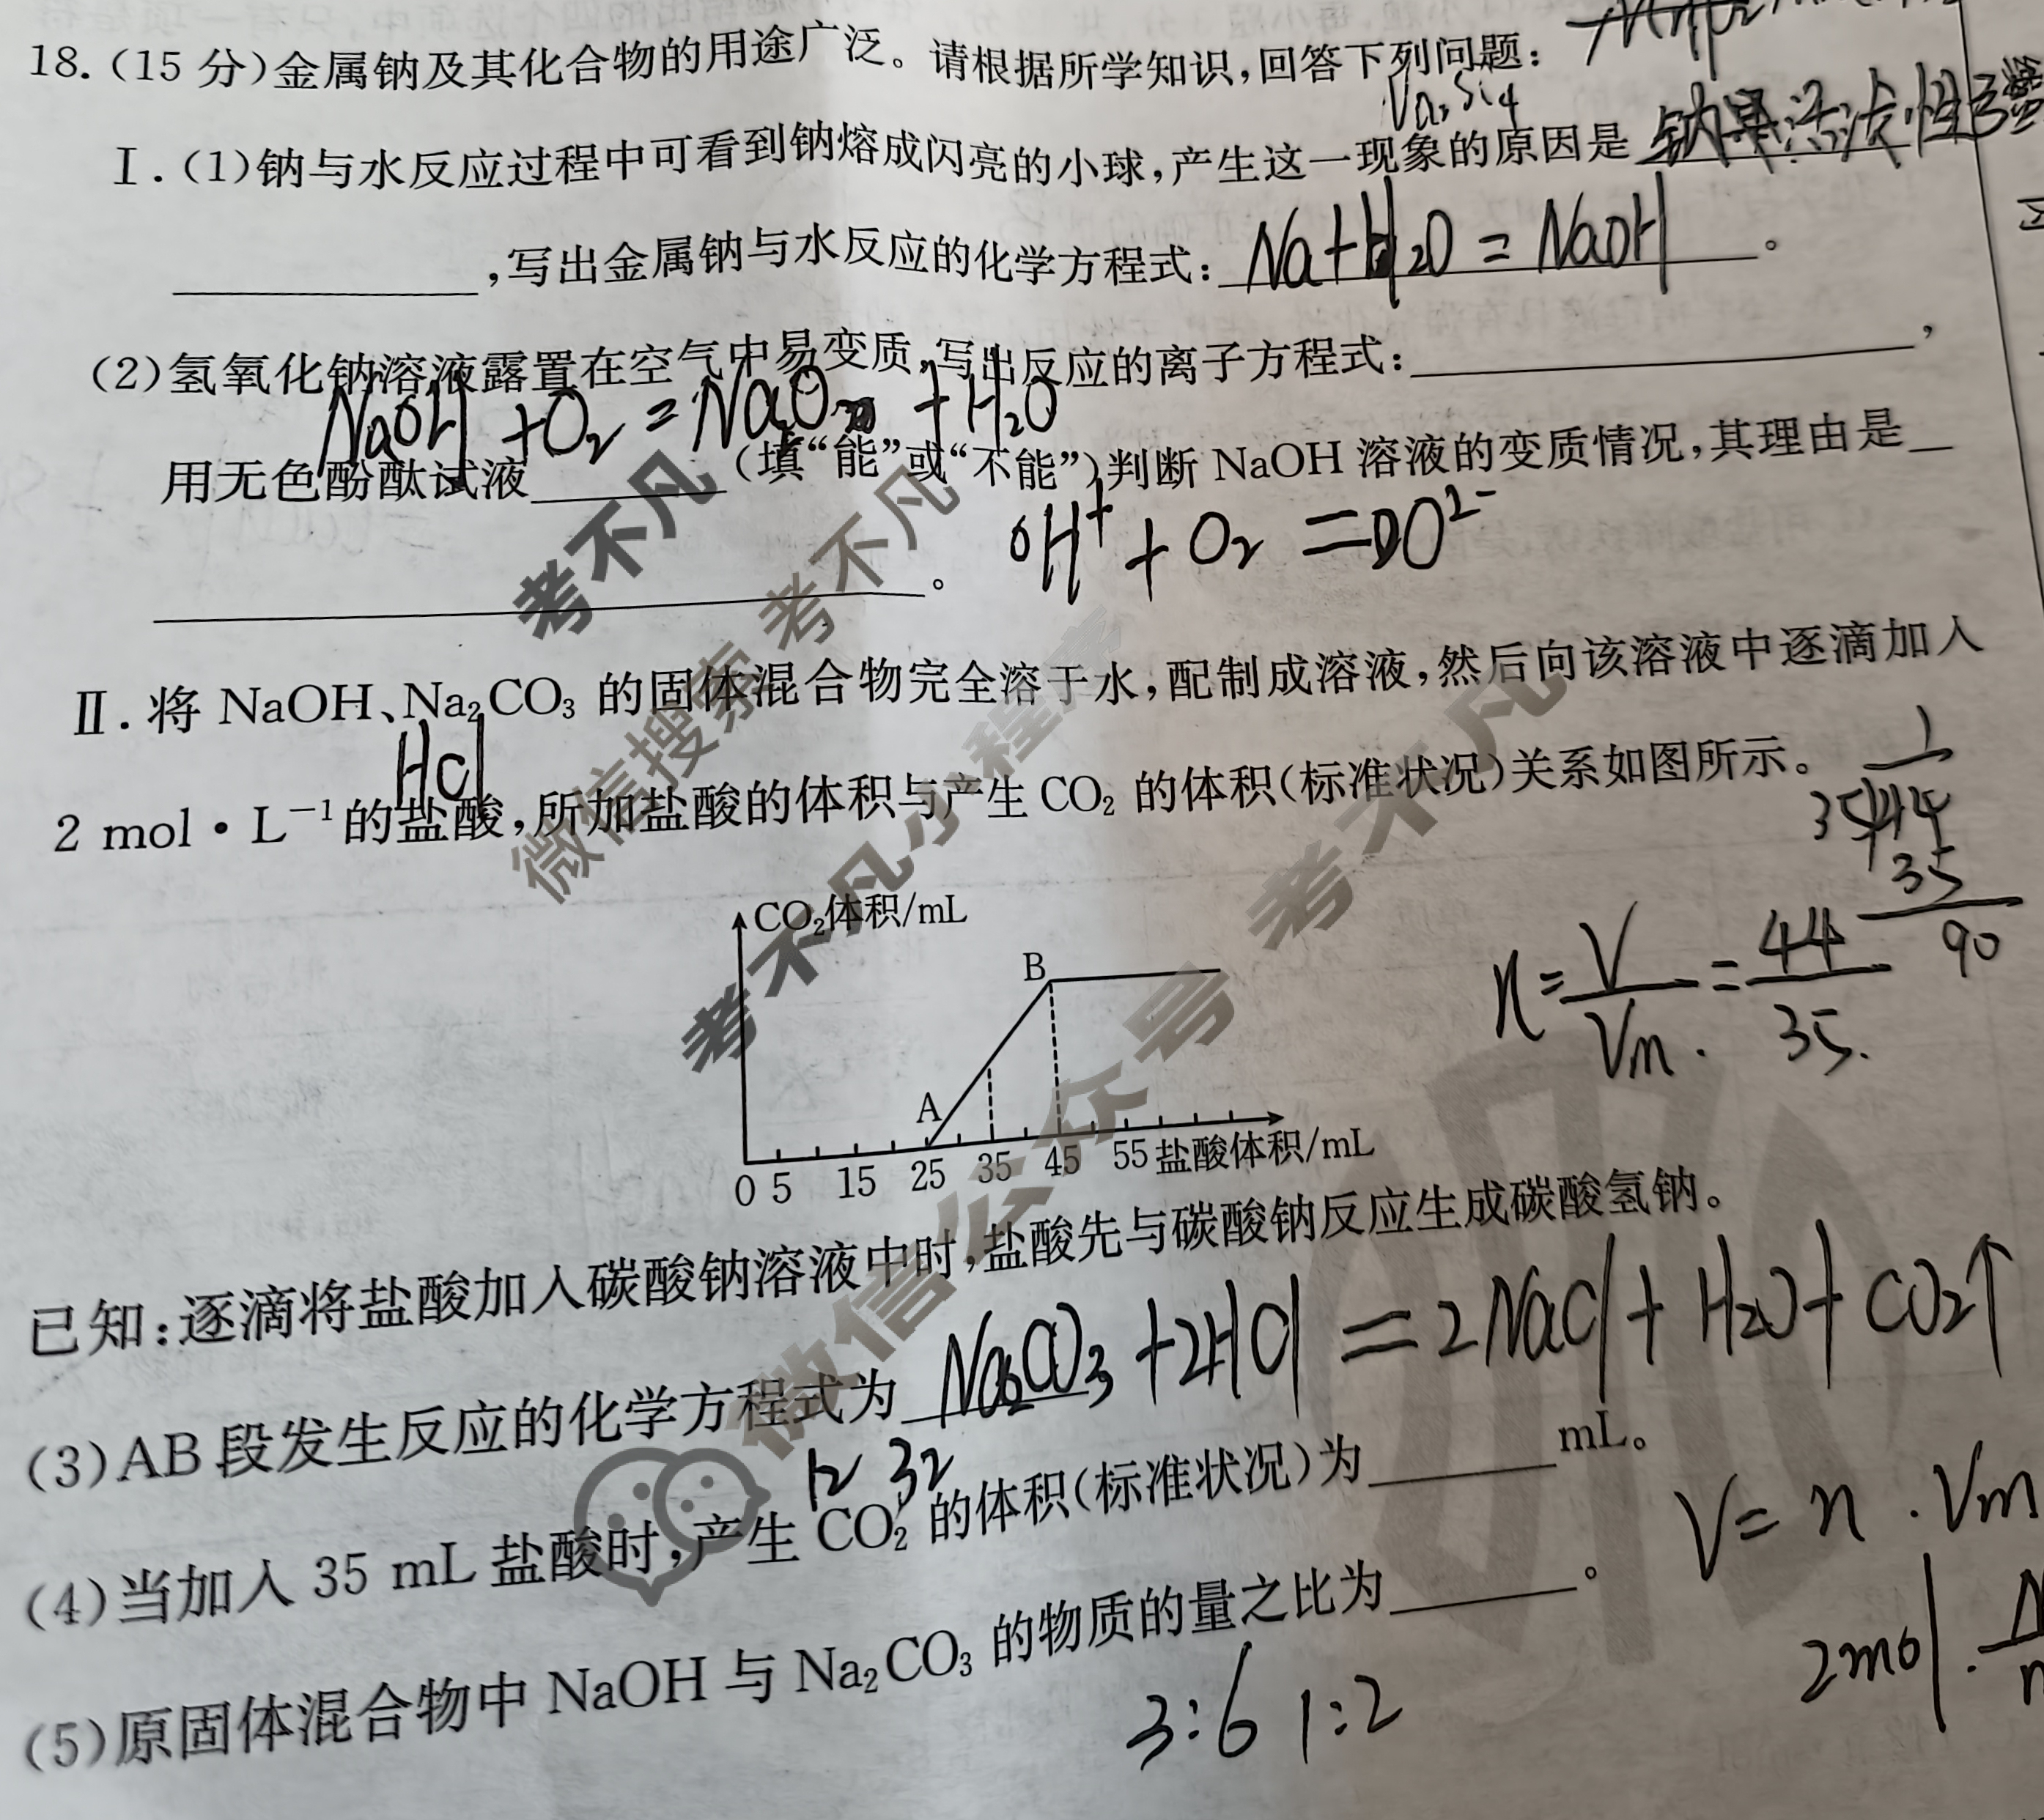 18.(15 分)金属钠及其化合物的用途广泛。请根据所学知识,回答下列问题:
Ⅰ.(1)钠与水反应过程中可看到钠熔成闪亮的小球,产生这一现象的原因是 钠是活泼性
,写出金属钠与水反应的化学方程式: Na+H2O=NaOH 。
(2)氢氧化钠溶液露置在空气中易变质,写出反应的离子方程式: ,
NaOH +O2= +H2O
用无色酚酞试液 (填“能”或“不能”)判断 NaOH 溶液的变质情况,其理由是
OH+ + O2 = O2-
。
Ⅱ.将 NaOH、Na2CO3 的固体混合物完全溶于水,配制成溶液,然后向该溶液中逐滴加入
HCl
2 mol·L−1的盐酸,所加盐酸的体积与产生 CO2 的体积(标准状况)关系如图所示。
1
35 44
35
90
n=V/Vm.=44/35.
CO2体积/mL
B
A
0 5 15 25 35 45 55 盐酸体积/mL
已知:逐滴将盐酸加入碳酸钠溶液中时,盐酸先与碳酸钠反应生成碳酸氢钠。
(3)AB 段发生反应的化学方程式为 Na2CO3+2HCl=2NaCl+H2O+CO2↑
12 32
(4)当加入 35 mL 盐酸时,产生 CO2 的体积(标准状况)为 mL。
V= n .Vm
(5)原固体混合物中 NaOH 与 Na2CO3 的物质的量之比为 。
2mol.
3:6 1:2
考不凡
微信搜索 考不凡
考不凡小程序
微信公众号 考不凡